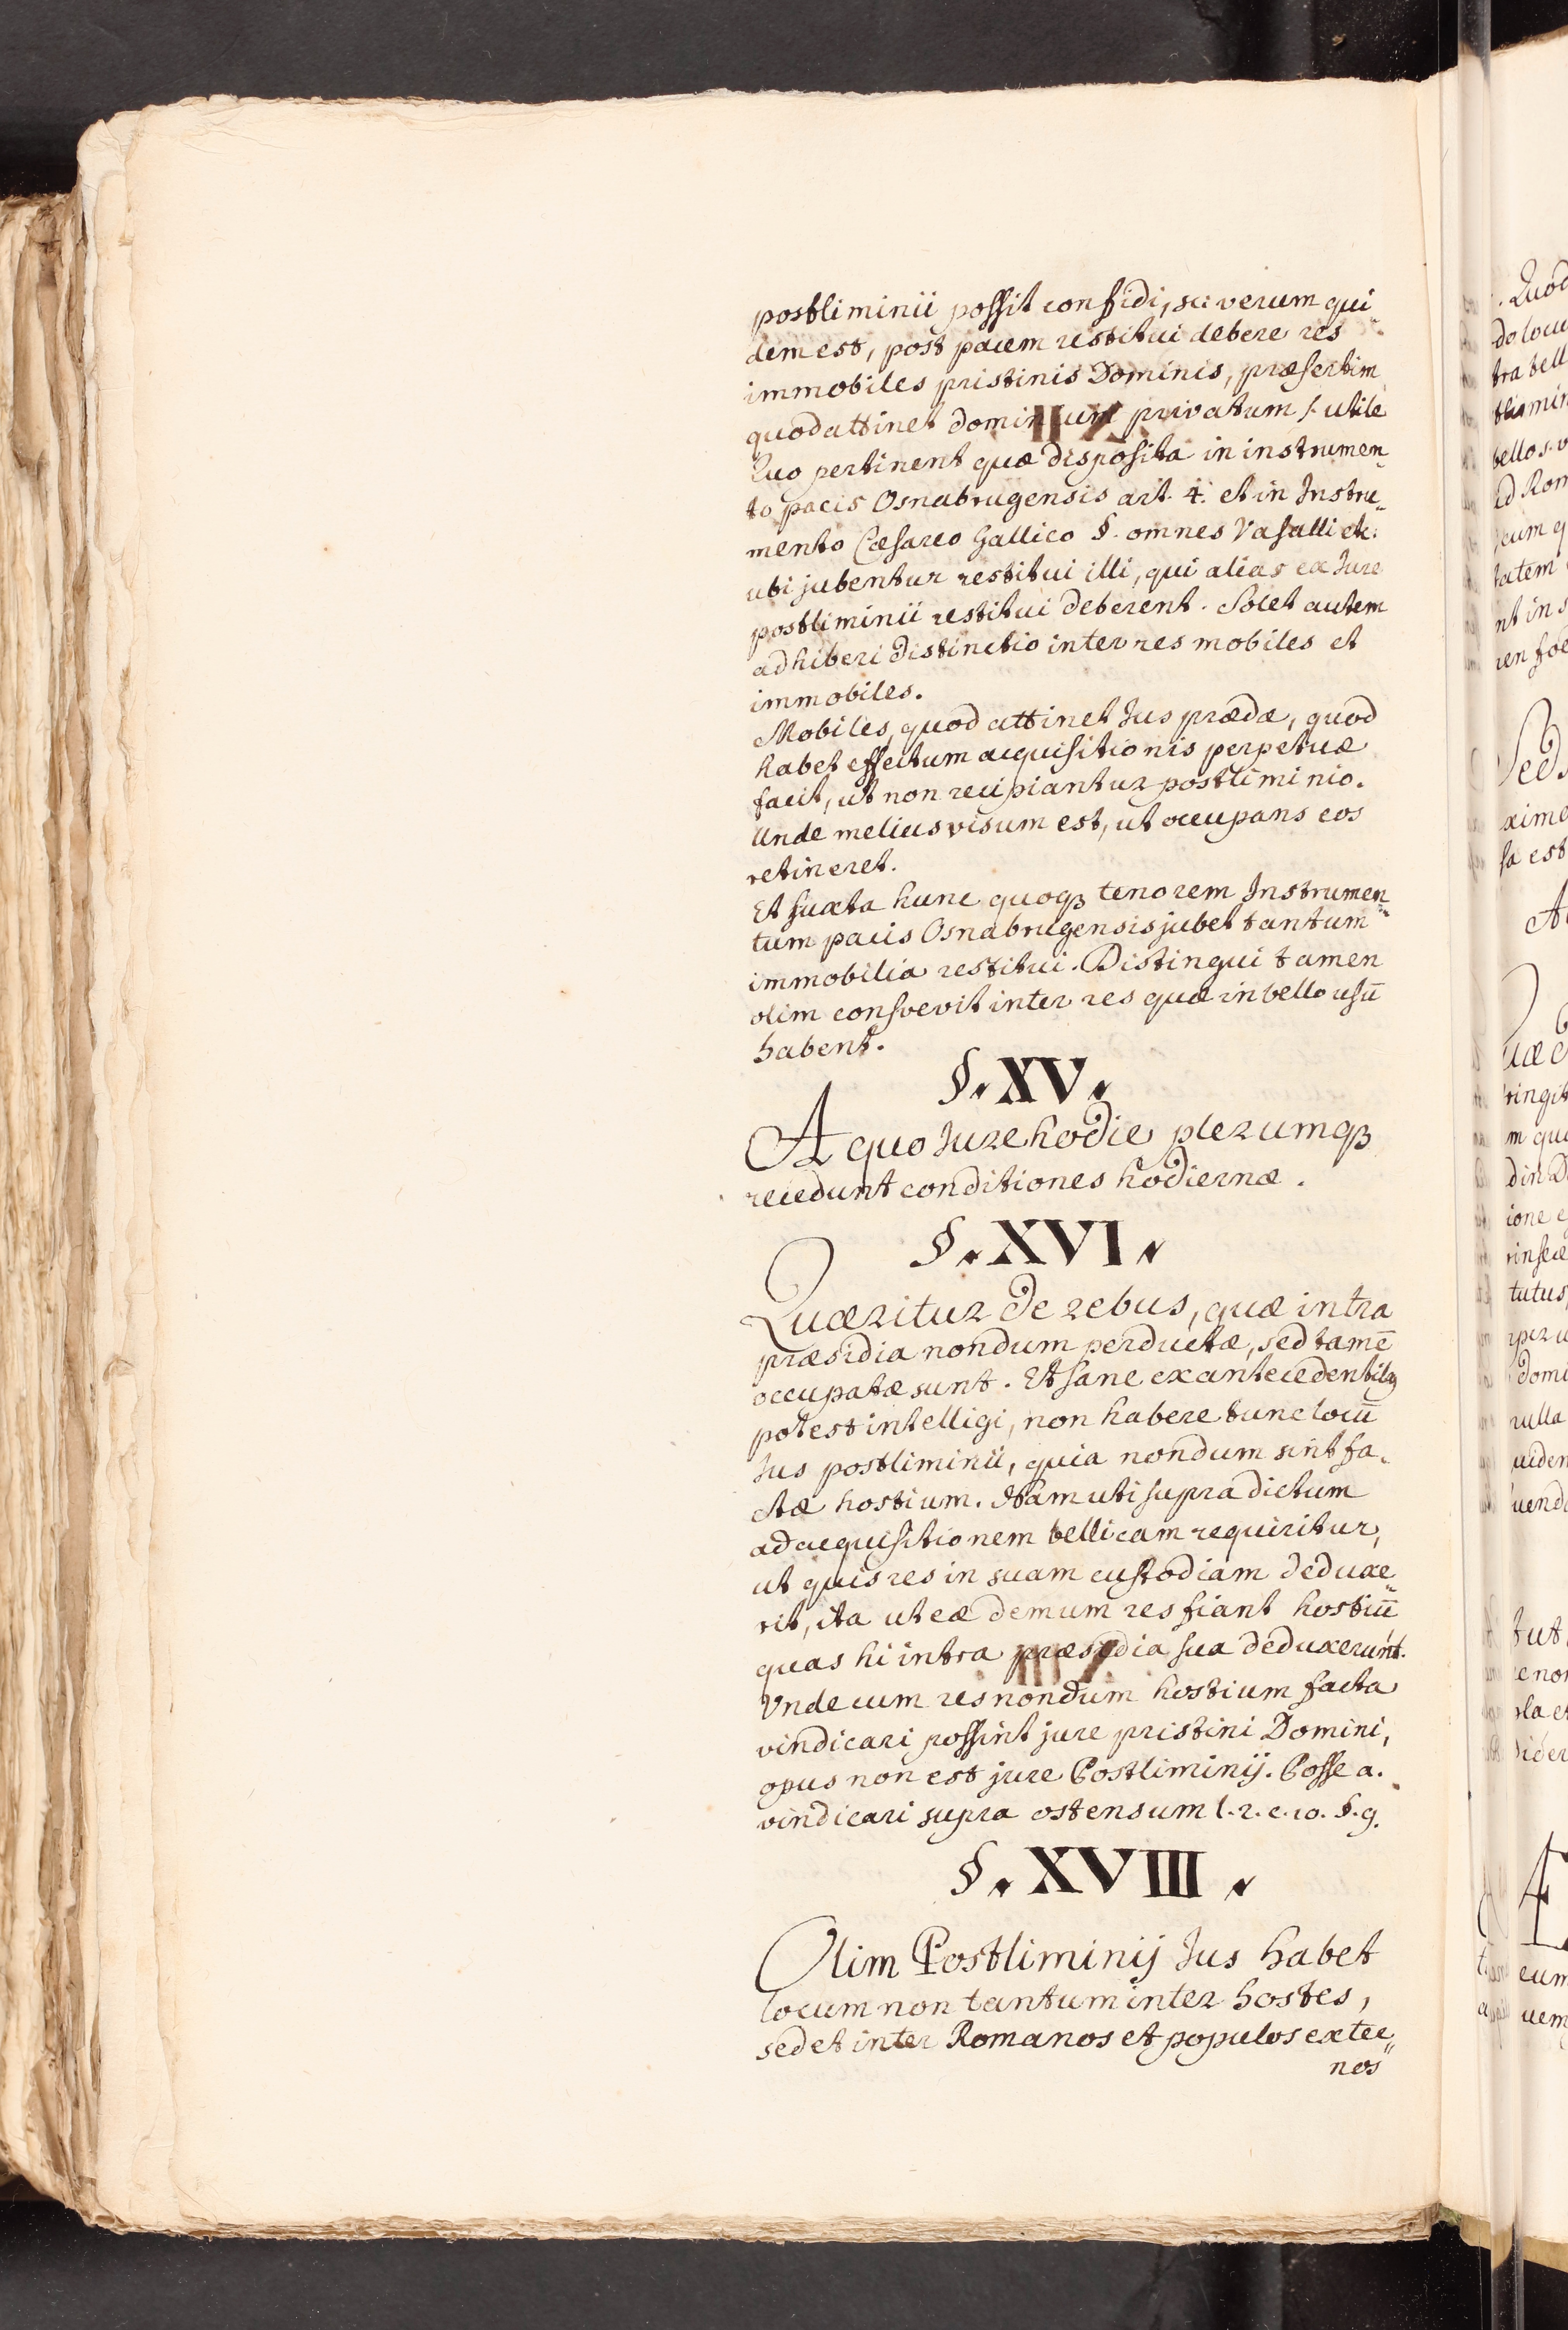 postliminii possit confidi, sic verum qui„
dem est, post pacem restitui debere res
immobiles pristinis Dominis, præsertim
quod attinet dominium privatum s. utile
Quo pertinent quæ disposita in instrumen„
to pacis Osnabrugensis art. 4. et in Instru„
mento Cæsareo Gallico §. omnes Vasalli etc:
ubi jubentur restitui illi, qui alias ex Jure
postliminii restitui deberent. Solet autem
adhiberi distinctio inter res mobiles et
immobiles.
Mobiles, quod attinet Jus prædæ, quod
habet effectum acquisitionis perpetuæ
facit, ut non recipiantur postliminio.
Unde melius visum est, ut occupans eos
retineret.
Et juxta hunc quoqꝫ tenorem Instrumen„
tum pacis Osnabrugensis jubet tantum
immobilia restitui. Distingui tamen
olim consvevit inter res quæ in bello usū
habent.
§. XV.
A quo Jure hodie plerumqꝫ
recedunt conditiones hodiernæ.
§. XVI.
Quæritur de rebus, quæ intra
præsidia nondum perductæ, sed tamē
occupatæ sunt. Et sane ex antecedentibꝫ
potest intelligi, non habere tunc locū
Jus postliminii, quia nondum sint fa„
ctæ hostium. Nam uti supra dictum
ad acquisitionem bellicam requiritur,
ut quis res in suam custodiam deduxe„
rit, ita ut eæ demum res fiant hostiū
quas hi intra præsidia sua deduxerunt.
Unde cum res nondum hostium facta
vindicari possint jure pristini Domini,
opus non est jure Postliminij. Posse a.
vindicari supra ostensum l. 2. c. 10. §. 9.
§. XVIII.
Olim Postliminij Jus habet
locum non tantum inter hostes,
sed et inter Romanos et populos exter„
nos